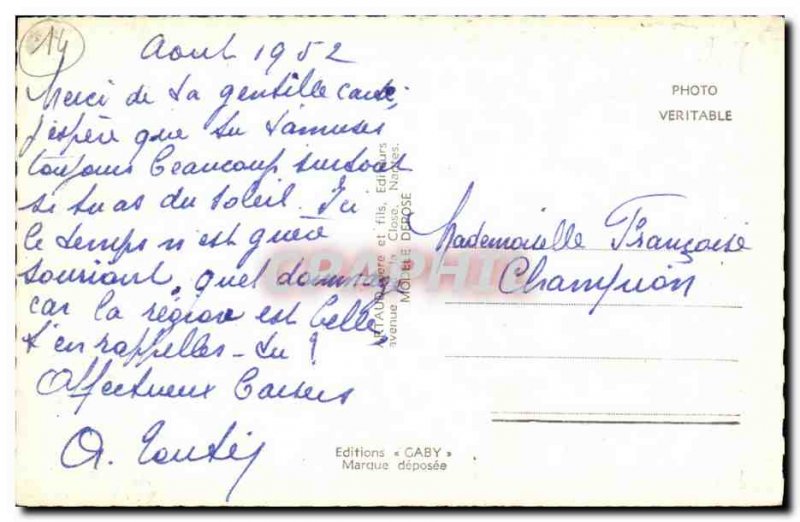 14
Aout 1952
Merci de ta gentille carte,
j'espère que tu t'amuses
toujours beaucoup surtout
si tu as du soleil. Ici
le temps n'est guère
souriant, quel dommage
car la région est belle,
t'en rappelles-tu ?
Affectueux baisers
PHOTO
VERITABLE
ARTAUD père et fils, Editeurs
avenue de la Close, Nantes.
MODÈLE DÉPOSÉ
Mademoiselle Françoise
Champion
Editions « GABY »
Marque déposée